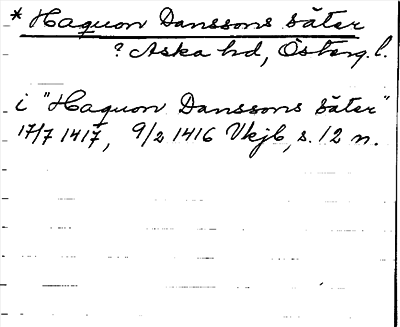 * Haquon Danssons säter
? Aska hd, Österg. l.
i "Haquon Danssons säter"
17/7 1417, 9/2 1416 Vkjb, s. 12 n.